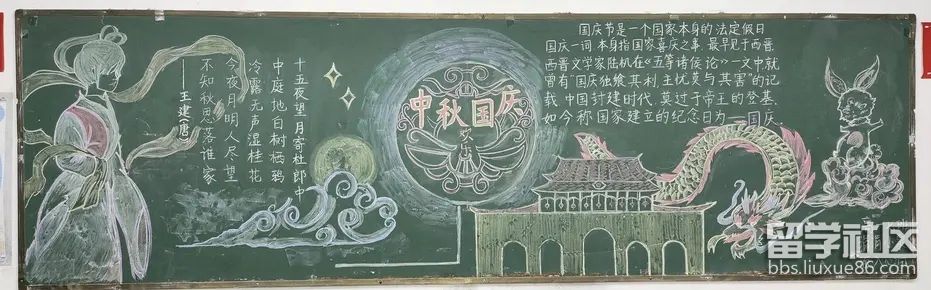 十五夜望月寄杜郎中
中庭地白树栖鸦
冷露无声湿桂花
今夜月明人尽望
不知秋思落谁家
——王建(唐)
中秋国庆
国庆节是一个国家本身的法定假日
国庆一词,本身指国家喜庆之事,最早见于西晋.
西晋文学家陆机在《五等诸侯论》一文中就
曾有"国庆独飨其利,主忧莫与其害"的记
载.中国封建时代,莫过于帝王的登基.
如今称国家建立的纪念日为——国庆.
留学社区
bbs.liuxue86.com